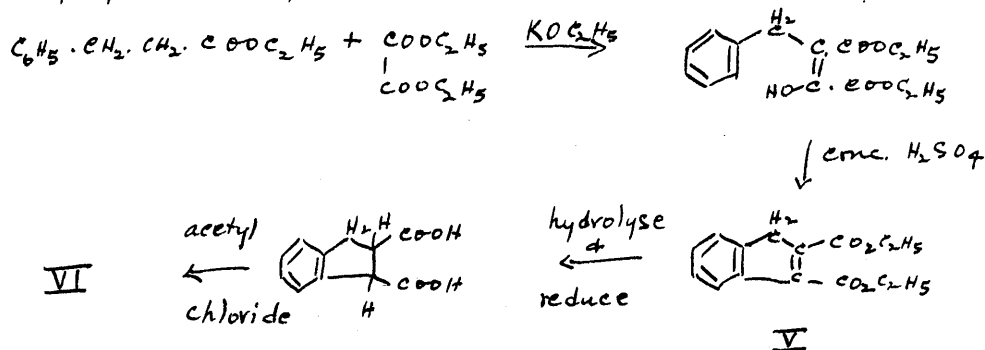 C6H5 . CH2 . CH2 . COOC2H5 + COOC2H5 KOC2H5
COOC2H5
H2
C C . COOC2H5
HO C . COOC2H5
conc. H2SO4
acetyl
chloride
VI
H2 H COOH
COOH
H
hydrolyse
&
reduce
H2
C C CO2C2H5
C CO2C2H5
V